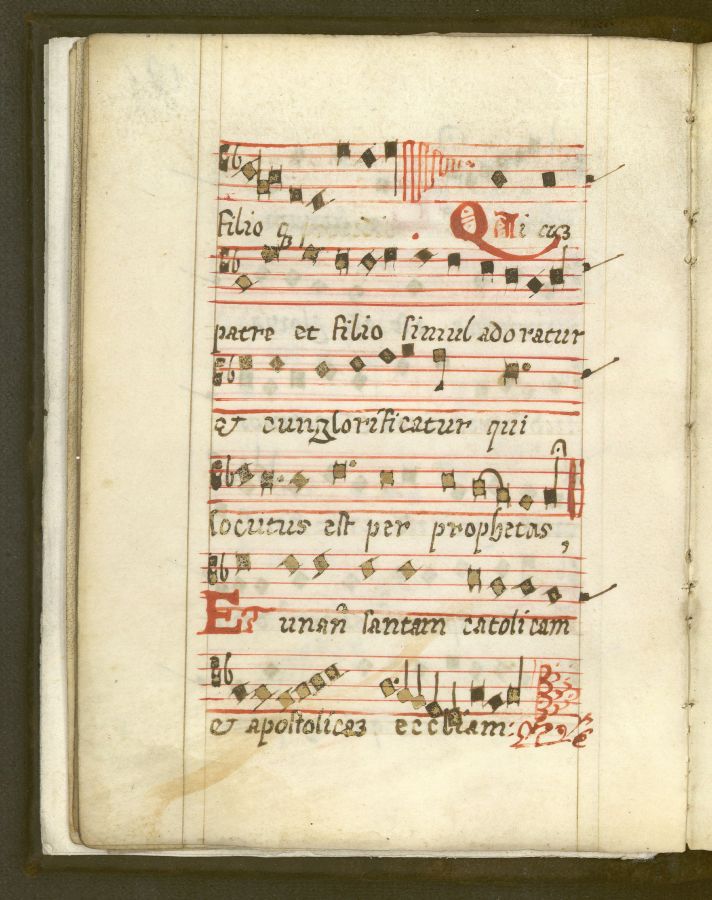 Filio qȝ
Qui cuȝ
patre et filio simul adoratur
et cunglorificatur qui
locutus est per prophetas,
Et unañ santam catolicam
et apostolicaȝ eccliam: